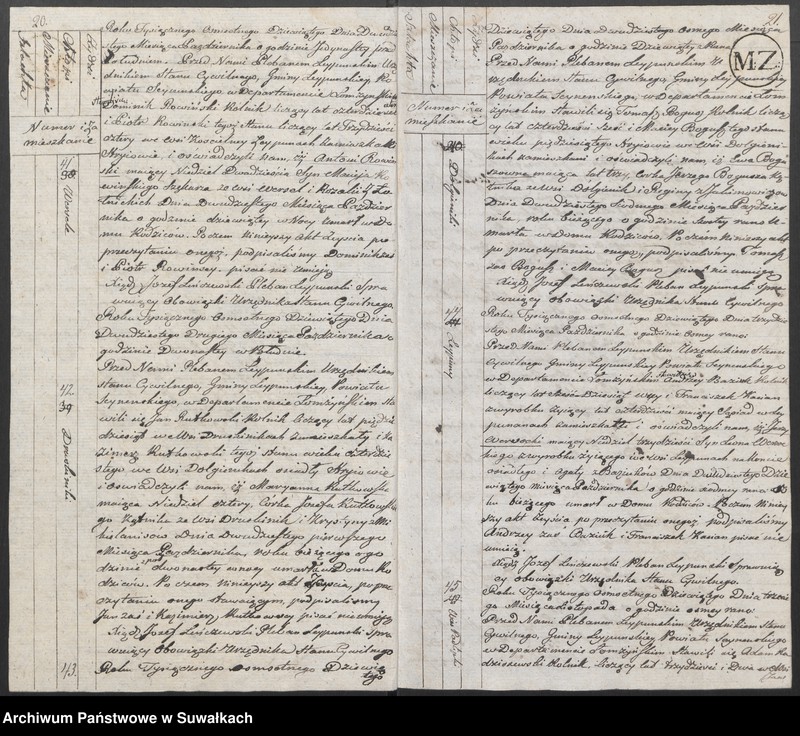 20.
Szlachta
Mieszczanie
Chłopi
Żydzi
Numer i Za
mieszkanie
41
Wersele
42
39
Druskinki
43.
Roku Tysięcznego Osmsetnego Dziewiątego Dnia
stego Miesiąca Października o godzinie Jedynastey przed
południem. Przed Nami Plebanem Leypunskim Urzę
dnikiem Stanu Cywilnego, Gminy Leypunskiey Po
wiatu Seynenskiego w Departamencie Łomżyńskim
Dominik Rowinski Rolnik liczący lat czterdzieści
i Piotr Rowinski tegoż Stanu liczący lat Trzydzieści
cztery we wsi Kościelney Leypunach zamieszkali
Stryiowie, i oświadczyli nam, iż Antoni Rowin
ski maiący Niedziel Dwadzieścia Syn Macieja
ze wsi Wersel i
Dnia Dwudziestego Miesiąca Paździer
nika o godzinie dziewiątey w Nocy umarł w Do
mu Rodziców. Poczem Ninieyszy Akt Zeyścia po
przeczytaniu onego, podpisaliśmy Dominik zaś
i Piotr Rowinscy. pisać nie umieią
Xiądz Jozef Leńczewski Pleban Leypunski Spra
wuiący obowiązki Urzędnika Stanu Cywilnego.
Roku Tysięcznego Osmsetnego Dziewiątego Dnia
Dwudziestego Drugiego Miesiąca Października o
godzinie Dwunastey w Południe.
Przed Nami Plebanem Leypunskim Urzędnikiem
Stanu Cywilnego, Gminy Leypunskiey, Powiatu
Seynenskiego, w Departamencie Łomżyńskim Sta
wili się Jan Rutkowski Rolnik liczący lat pięćdzie
siąt we Wsi Druskinkach zamieszkały i Ka
zimierz Rutkowski tegoż Stanu wieku czterdzie
stego we Wsi Dolginkach osiadły Stryiowie
i oświadczyli nam, iż Maryanna Rutkowska
maiąca Niedziel cztery, Corka Jozefa Rutkowskie
go Rolnika ze wsi Druskinik i Krystyny z Mi
kołaniców Dnia Dwudziestego pierwszego
Miesiąca Października, roku bieżącego o go
dzinie dwunastey w nocy umarła w Domu Ro
dziców. Po czem Ninieyszy akt Zeyscia, po prze
czytaniu onego Stawaiącym, podpisaliśmy
Jan zaś i Kazimierz Rutkowscy pisać nie umieią
Xiądz Jozef Leńczewski Pleban Leypunski Spra
wuiący obowiązki Urzędnika Stanu Cywilnego
Roku Tysięcznego Osmsetnego Dziewią
tego
21.
MZ.
Szlachta
Mieszczanie
Chłopi
Żydzi
Numer i Za
mieszkanie
Dolginki
44
Leypuny
45
Dziewiątego Dnia Dwudziestego Osmego Miesiąca
Października o godzinie Dziewiątey z Rana
Przed Nami Plebanem Leypunskim U
rzędnikiem Stanu Cywilnego, Gminy Leypunskiey
Powiatu Seynenskiego, w Departamencie Łom
żyńskim Stawili się Tomasz Bogusz Rolnik liczą
cy lat czterdzieści Sześć i Maciey Bogusz tegoż Stanu
wieku pięćdziesiąt Stryiowie we wsi Dolgin
kach zamieszkali i oświadczyli nam, iż Ewa Bogu
szowna maiąca lat trzy, Corka Jerzego Bogusza Rol
nika z Wsi Dolginik i Reginy
Dnia Dwudziestego Siodmego Miesiąca Paździer
nika, roku bieżącego o godzinie Szostey rano U
marła w Domu Rodziców, Po czém Ninieyszy akt
po przeczytaniu onego, podpisaliśmy. Tomasz
zaś Bogusz i Maciey Bogusz pisać nie umieią
Xiądz Jozef Leńczewski Pleban Leypunski Spra
wuiący obowiązki Urzędnika Stanu Cywilnego
Roku Tysięcznego Osmsetnego Dziewiątego Dnia Trzydzie
stego Miesiąca Października o godzinie osmey rano
Przed Nami Plebanem Leypunskim Urzędnikiem Stanu
Cywilnego Gminy Leypunskiey Powiatu Seynenskiego
w Departamencie Łomżyńskim Andrzey Baziuk Rolnik
liczący lat
z wyrobku żyiący, lat czterdzieści maiący Sąsiad w Ley
punach zamieszkali i oświadczyli nam, iż Jerzy
maiący Niedziel trzydzieści Syn
kiego z wyrobku żyiącego we wsi Leypunach na
osiadłego i Agaty z Baziukow Dnia Dwudziestego Dzie
wiątego Miesiąca Października o godzinie siodmey rano ro
ku bieżącego umarł w Domu Rodziców. Poczem Niniey
szy akt Zeyscia po przeczytaniu onego, podpisaliśmy
Andrzey zaś Baziuk i Franciszek Kasian pisać nie
umieią.
Xiądz Jozef Leńczewski Pleban Leypunski Sprawuią
cy obowiązki Urzędnika Stanu Cywilnego.
Roku Tysięcznego Osmsetnego Dziewiątego Dnia trzecie
go Miesiąca Listopada o godzinie osmey rano
Przed Nami Plebanem Leypunskim Urzędnikiem Stanu
Cywilnego, Gminy Leypunskiey Powiatu Seynenskiego
w Departamencie Łomżyńskim Stawili się Adam Ra
dziszewski Rolnik. liczący lat trzydzieści i Dwa w
Archiwum Państwowe w Suwałkach